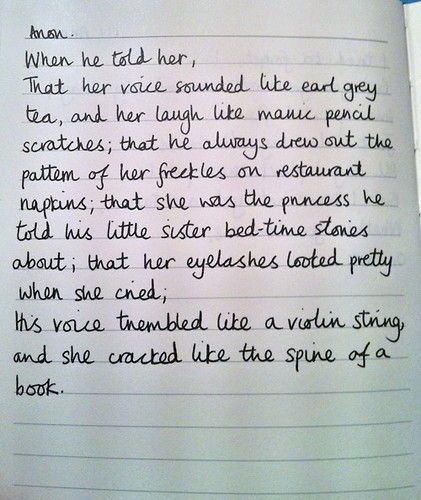 Anon.
When he told her,
That her voice sounded like earl grey
tea, and her laugh like manic pencil
scratches; that he always drew out the
pattern of her freckles on restaurant
napkins; that she was the princess he
told his little sister bed-time stories
about; that her eyelashes looked pretty
when she cried;
His voice trembled like a violin string,
and she cracked like the spine of a
book.